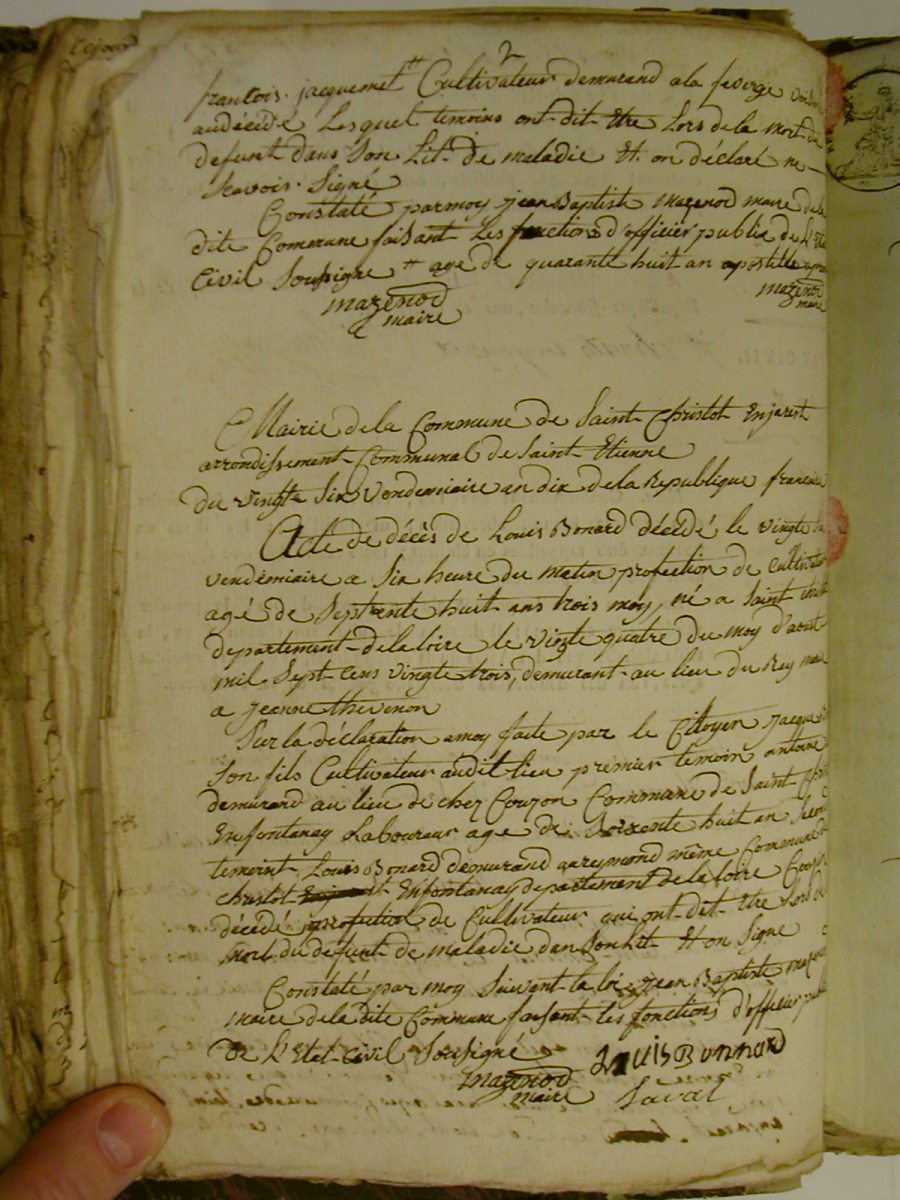 2
francois jacquemet tt Cultivateur demurand a la feorge
au décédé Lesquel temoins ont dit Etre Lors de la mort du
defunt dans Son Lit De maladie Et on déclaré ne
Scavoir Signé
Constaté par moy jean Baptiste Mazenod maire de la
dite Commune faisant Les fonctions d'officier public de L'Eta
Civil Sousigne tt age de quarante huit an apostille
mazenod
maire
mazenod
maire
Mairie de la Commune de Saint Christot Enjarest
arrondissement Communal de Saint Etienne
du vingt Six vendemiaire an dix de la Republique francaise
Acte de décès de Louis Bonard décédé le vingt
vendémiaire a Six heure du matin profection de Cultivat
agé de Septente huit ans trois moy, né a Saint
departement de la loire le vingte quatre du moy d'aout
mil Sept cens vingte trois, demurant au lieu du Rey
a jeanne thevenon
Sur la déclaration a moy faite par le Citoyen jacque
Son fils Cultivateur audit lieu premier temoin antoine
demurand au lieu de chez Couzon Commune de Saint
Enfontanay Laboureur age de Soixente huit an
temoint Louis Bonard demurand aureymond même Commune
christot Enfontanay departement de la loire
décédé profection de Cultivateur qui ont dit Etre Lors
mort du defunt de maladie dan Son Lit Et on Signe
Constaté par moy Suivant la loi jean Baptiste
maire de la dite Commune faisant les fonctions d'officier
de L'Etat Civil Sousigné
mazenod
maire
Louis Bonnard
Laval